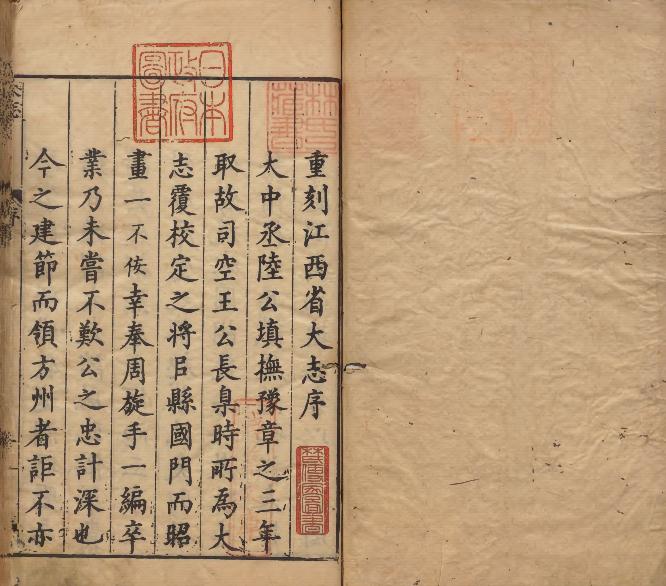 重刻江西省大志序
大中丞陸公填撫豫章之三年
取故司空王公長臬時所為大
志覆校定之將㠯縣國門而昭
畫一不佞幸奉周旋手一編卒
業乃未嘗不歎公之忠計深也
今之建節而領方州者詎不亦
日本
政府
圖書